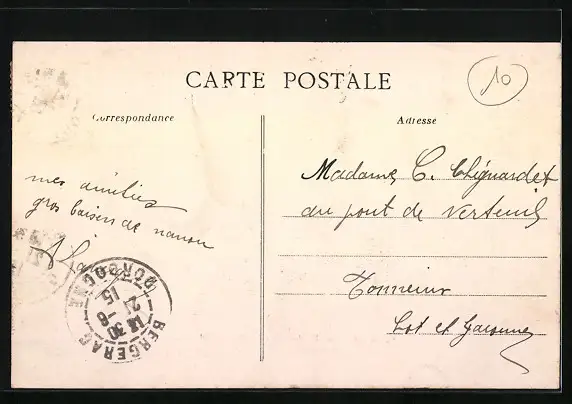 CARTE POSTALE
Correspondance
Adresse
10
mes amitiés
gros baisers de nanou
Madame C. Chignardet
au pont de Verteuil
Tonneins
Lot et Garonne
BERGERAC
21-6
15
DORDOGNE